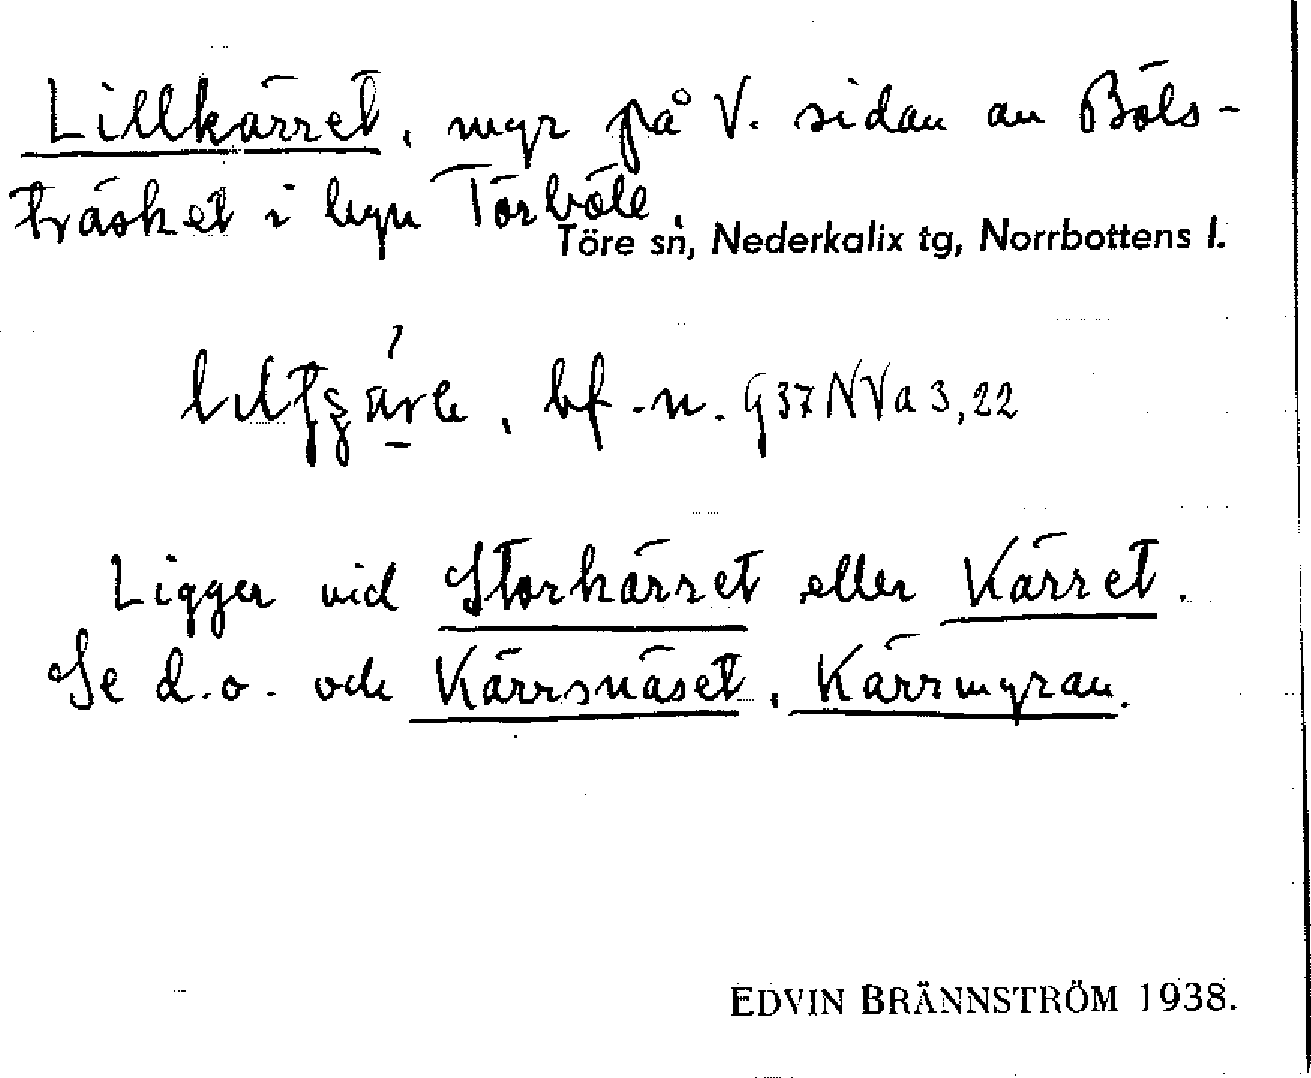 Lillkärret, myr på V. sidan av Böls-
träsket i byn Törböle.
Töre sn, Nederkalix tg, Norrbottens l.
bf. n. G37NVa3,22
Ligger vid Storkärret eller Kärret.
Se d.o. och Kärrsnäset, Kärrmyran.
EDVIN BRÄNNSTRÖM 1938.